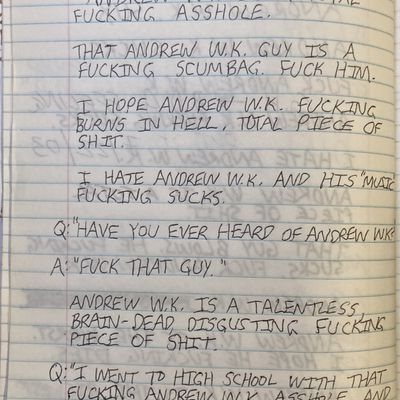 FUCKING ASSHOLE.
THAT ANDREW W.K. GUY IS A
FUCKING SCUMBAG. FUCK HIM.
I HOPE ANDREW W.K. FUCKING
BURNS IN HELL, TOTAL PIECE OF
SHIT.
I HATE ANDREW W.K. AND HIS "MUSIC"
FUCKING SUCKS.
Q: "HAVE YOU EVER HEARD OF ANDREW W.K?
A: "FUCK THAT GUY."
ANDREW W.K. IS A TALENTLESS,
BRAIN-DEAD, DISGUSTING FUCKING
PIECE OF SHIT.
Q: "I WENT TO HIGH SCHOOL WITH THAT
FUCKING ANDREW W.K. ASSHOLE AND